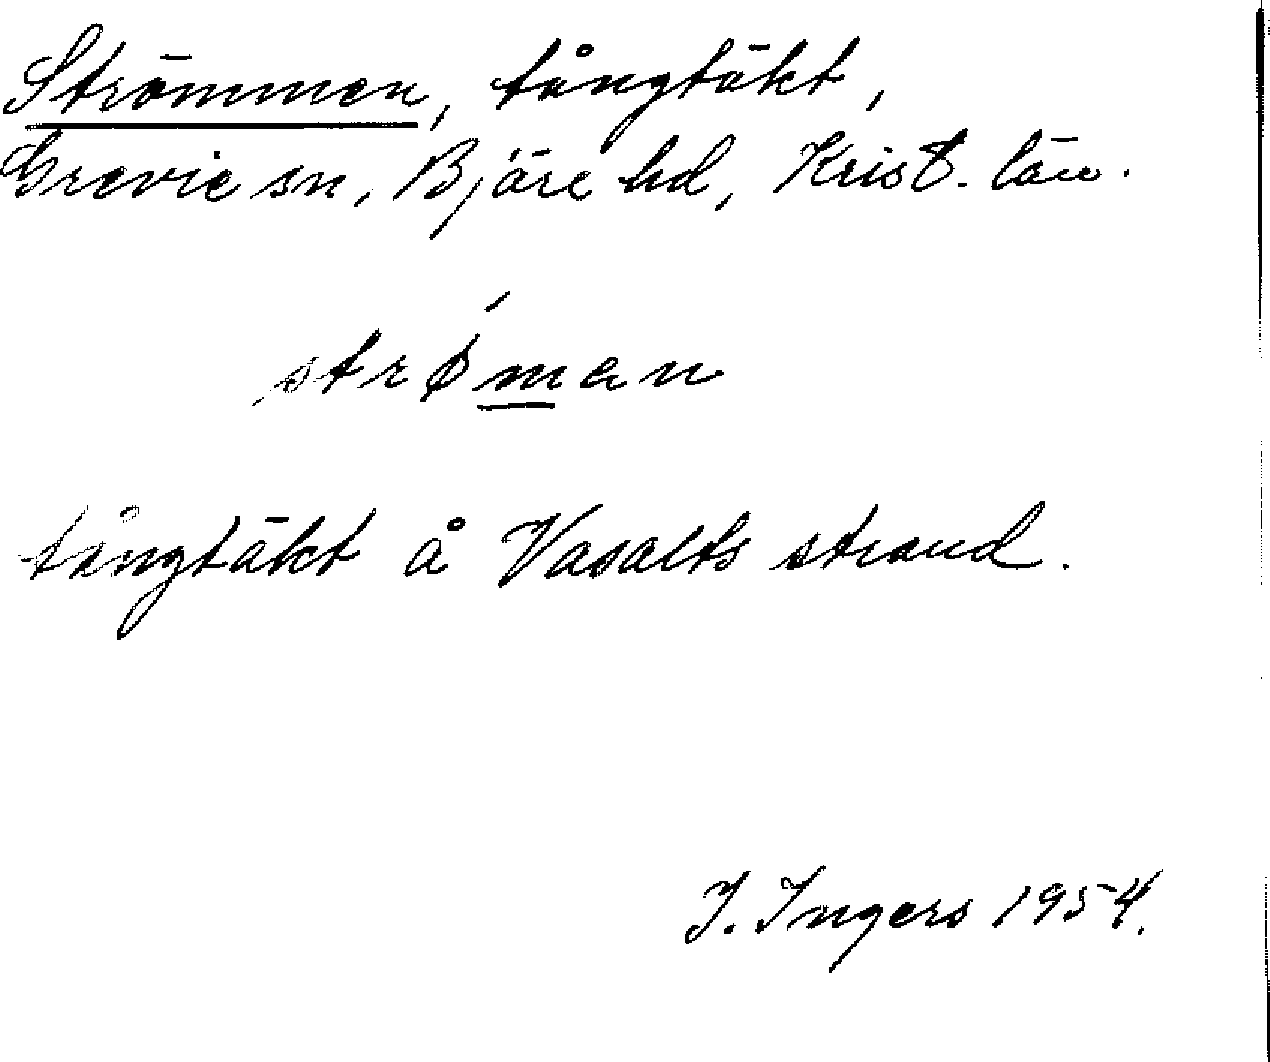 Strömmen, tångtäkt,
Grevie sn, Bjäre hd, Krist. län.
strø´man
tångtäkt å Vasalts strand.
I. Ingers 1954.